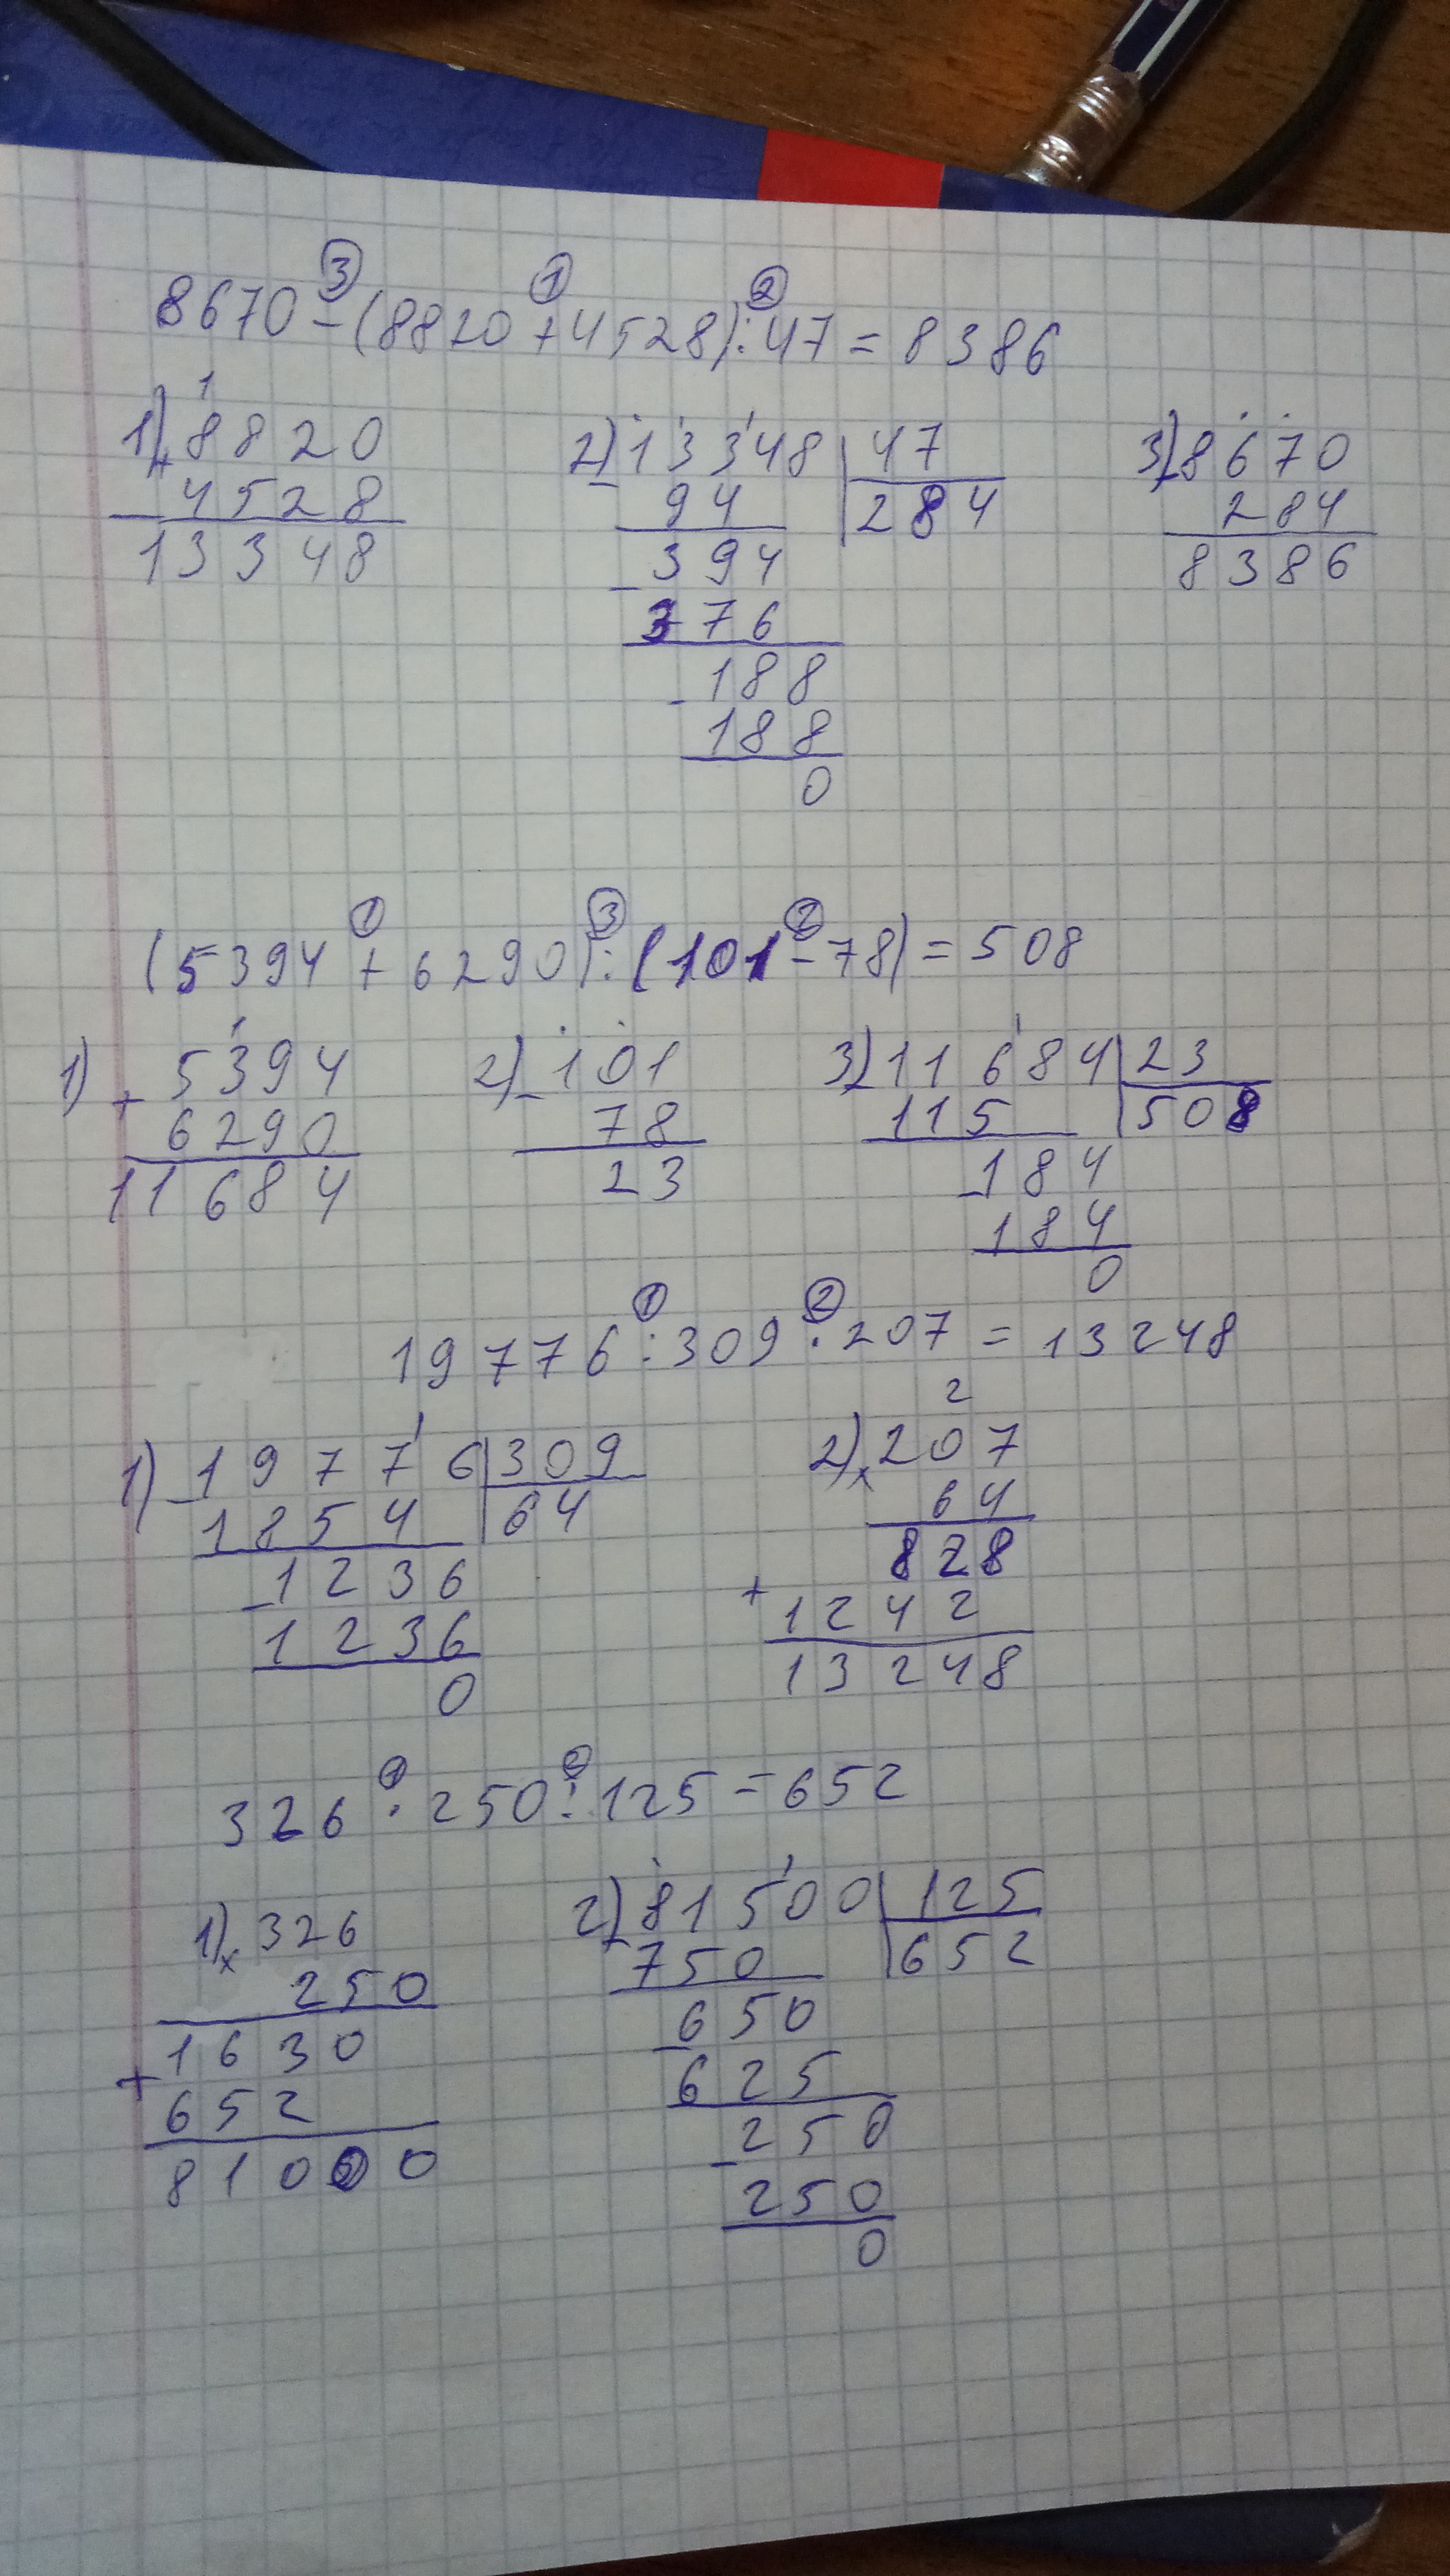 8670 - (8820 + 4528) : 47 = 8386
3 1 2
1) 8820 + 4528 = 13348
2) 13348 | 47
94 284
394
376
188
188
0
3) 8670
284
8386
(5394 + 6290) : (101 - 78) = 508
1 3 2
1) + 5394
6290
11684
2) - 101
78
23
3) 11684 | 23
115 508
184
184
0
19776 : 309 · 207 = 13248
1 2
1) - 19776 | 309
1854 64
1236
1236
0
2) × 207
64
828
+ 1242
13248
326 · 250 : 125 = 652
1) × 326
250
1630
+ 652
81000
2) 81500 | 125
750 652
650
625
250
250
0